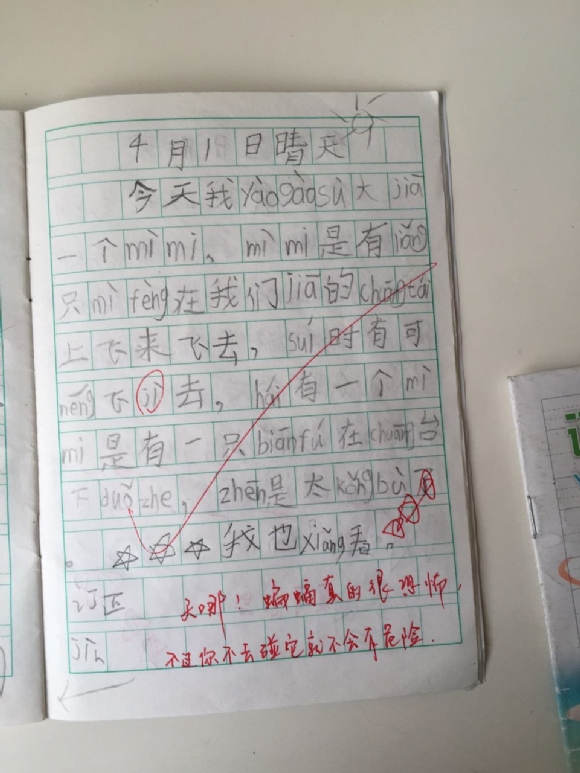 4月1日晴天
今天我yàogàosù大jiā
一个mìmì，mìmì是有jǐ
只mì fēng在我们jiā的chuāngtái
上飞来飞去，suí时有可
néng飞jì去，hái有一个mì
mì是有一只biānfú在chuāng台
下duǒzhe，zhēn是太kǒngbù了
。我也xiǎng看。
订正
jìn
天哪！蝙蝠真的很恐怖，
不过你不去碰它就不会有危险.